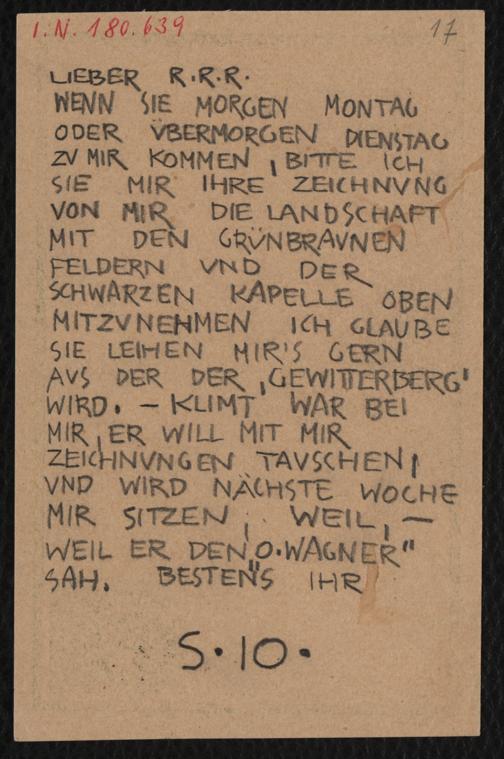 I.N. 180.639
17
LIEBER R.R.R.
WENN SIE MORGEN MONTAG
ODER VBERMORGEN DIENSTAG
ZV MIR KOMMEN, BITTE ICH
SIE MIR IHRE ZEICHNVNG
VON MIR DIE LANDSCHAFT
MIT DEN GRÜNBRAVNEN
FELDERN VND DER
SCHWARZEN KAPELLE OBEN
MITZVNEHMEN ICH GLAUBE
SIE LEIHEN MIR'S GERN
AVS DER DER ‚GEWITTERBERG'
WIRD. – KLIMT WAR BEI
MIR, ER WILL MIT MIR
ZEICHNVNGEN TAVSCHEN,
VND WIRD NÄCHSTE WOCHE
MIR SITZEN, WEIL, –
WEIL ER DEN „O.WAGNER"
SAH. BESTENS IHR
S.10.